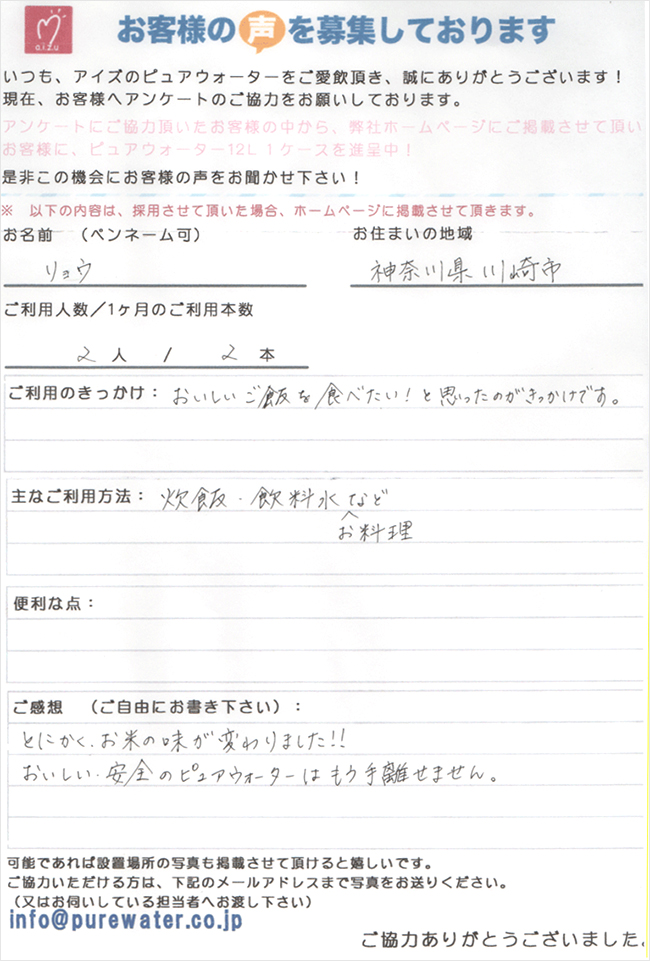 a.i.z.u
お客様の声を募集しております
いつも、アイズのピュアウォーターをご愛飲頂き、誠にありがとうございます！
現在、お客様へアンケートのご協力をお願いしております。
アンケートにご協力頂いたお客様の中から、弊社ホームページにご掲載させて頂い
お客様に、ピュアウォーター12L 1ケースを進呈中！
是非この機会にお客様の声をお聞かせ下さい！
※ 以下の内容は、採用させて頂いた場合、ホームページに掲載させて頂きます。
お名前 （ペンネーム可） お住まいの地域
リョウ 神奈川県川崎市
ご利用人数／1ヶ月のご利用本数
2 人 / 2 本
ご利用のきっかけ： おいしいご飯を食べたい！と思ったのがきっかけです。
主なご利用方法： 炊飯・飲料水など
お料理
便利な点：
ご感想 （ご自由にお書き下さい）：
とにかく、お米の味が変わりました!!
おいしい・安全のピュアウォーターはもう手離せません。
可能であれば設置場所の写真も掲載させて頂けると嬉しいです。
ご協力いただける方は、下記のメールアドレスまで写真をお送りください。
（又はお伺いしている担当者へお渡し下さい）
info@purewater.co.jp
ご協力ありがとうございました。